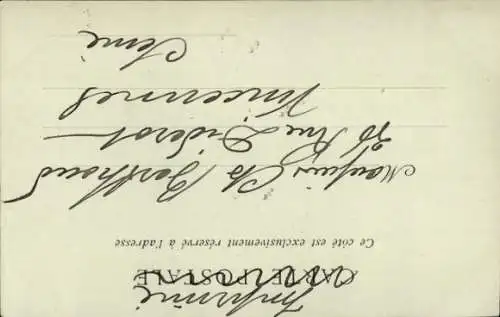 Imprimé
CARTE POSTALE
Ce côté est exclusivement réservé à l'adresse
Monsieur Ch Berthoud
26 Rue Diderot
Vincennes
Seine